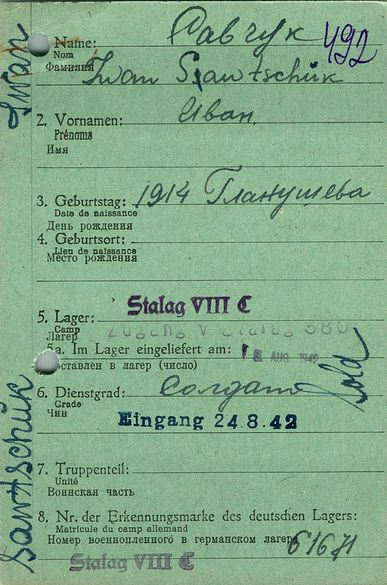 Iwan
Sawtschük
492
1. Name:
Савчук
Nom
Фамилия
Iwan Sawtschük
2. Vornamen:
Иван
Prénoms
Имя
3. Geburtstag: 1914 Гланушева
Date de naissance
День рождения
4. Geburtsort:
Lieu de naissance
Место рождения
Stalag VIII C
5. Lager:
Camp
Лагерь
Zugang v. Stalag
5a. Im Lager eingeliefert am: 18 AUG. 1942
Доставлен в лагерь (число)
6. Dienstgrad: солдат Sold
Grade
Чин
Eingang 24.8.42
7. Truppenteil:
Unité
Воинская часть
8. Nr. der Erkennungsmarke des deutschen Lagers:
Matricule du camp allemand
Номер военнопленного в германском лагере 61671
Stalag VIII C